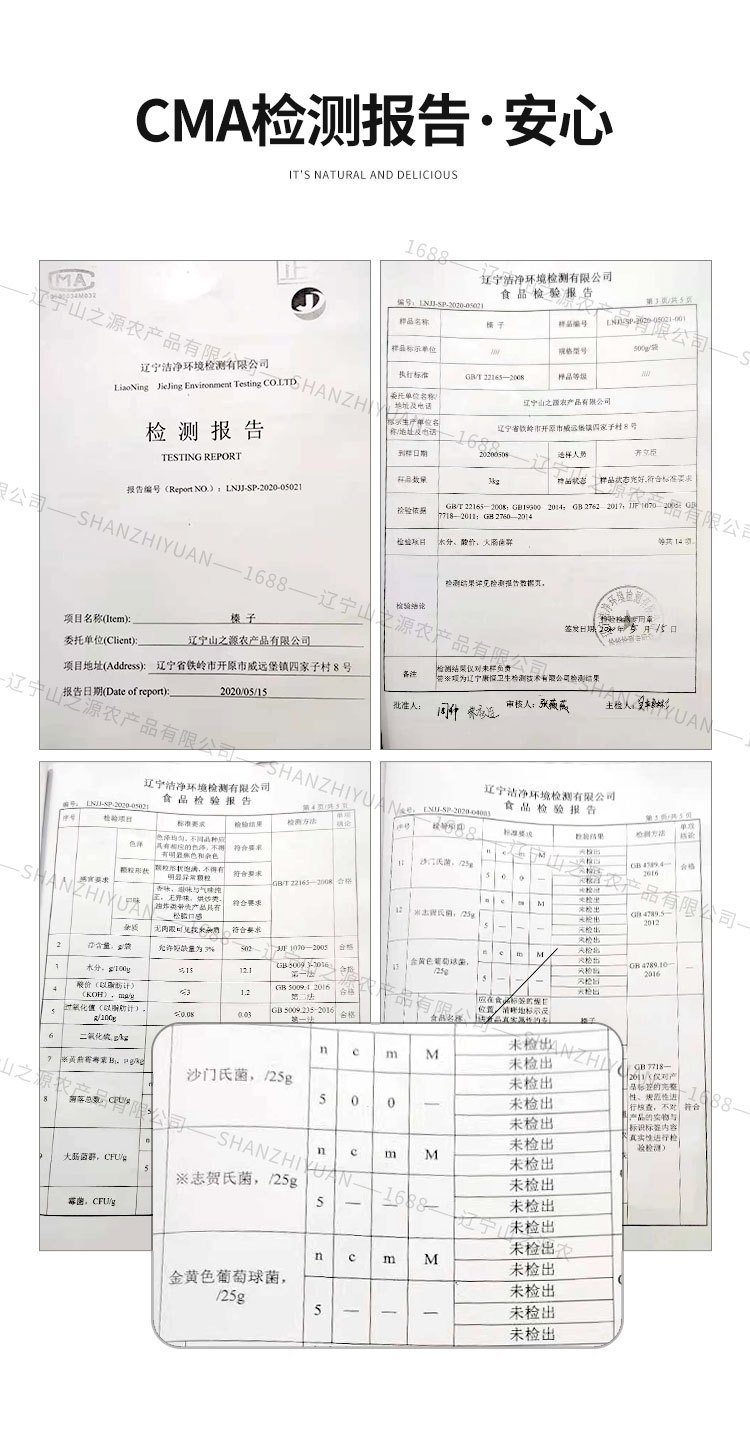 CMA检测报告·安心
IT'S NATURAL AND DELICIOUS
MA
正
辽宁洁净环境检测有限公司
LiaoNing JieJing Environment Testing CO.LTD
检 测 报 告
TESTING REPORT
报告编号（Report NO.）：LNJJ-SP-2020-05021
项目名称(Item): 榛 子
委托单位(Client): 辽宁山之源农产品有限公司
项目地址(Address): 辽宁省铁岭市开原市威远堡镇四家子村 8 号
报告日期(Date of report): 2020/05/15
辽宁洁净环境检测有限公司
食 品 检 验 报 告
编号：LNJJ-SP-2020-05021 第 3 页/共 5 页
样品名称 榛 子 样品编号 LNJJ-SP-2020-05021-001
样品标示单位 //// 规格型号 500g/袋
执行标准 GB/T 22165—2008 样品等级 ////
委托单位名称/地址及电话 辽宁山之源农产品有限公司
标示生产单位名称/地址及电话 辽宁省铁岭市开原市威远堡镇四家子村 8 号
到样日期 20200508 送样人员 齐立臣
样品数量 3kg 样品状态 样品状态完好,符合标准要求
检验依据 GB/T 22165—2008; GB19300—2014; GB 2762—2017; JJF 1070—2005; GB 7718—2011; GB 2760—2014
检验项目 水分、酸价、大肠菌群 等共 14 项
检验结论 检测结果详见检测报告数据页。
检验检测专用章
签发日期: 2020 年 5 月 15 日
备注 检测结果仅对来样负责
带※项为辽宁康恒卫生检测技术有限公司检测结果
批准人： 审核人： 主检人：
辽宁洁净环境检测有限公司
食 品 检 验 报 告
编号：LNJJ-SP-2020-05021 第 4 页/共 5 页
序号 检验项目 标准要求 检验结果 检测方法 单项结论
1 感官要求 色泽 色泽均匀，不同品种应具有相应的色泽，不得有明显焦色和杂色 符合要求 GB/T 22165—2008 合格
颗粒形状 颗粒形状饱满，不得有明显异常颗粒 符合要求
口味 符合要求
杂质 无肉眼可见外来杂质 符合要求
2 净含量，g/袋 允许短缺量为 3% 502 JJF 1070—2005 合格
3 水分，g/100g ≤15 12.1 GB 5009.3-2016 第一法 合格
4 酸价（以脂肪计）（KOH），mg/g ≤3 1.2 合格
5 过氧化值（以脂肪计），g/100g ≤0.08 0.03 合格
6 二氧化硫, g/kg
7 ※黄曲霉毒素 B₁，μg/kg
8 菌落总数，CFU/g
9 大肠菌群，CFU/g n 5
霉菌，CFU/g
辽宁洁净环境检测有限公司
食 品 检 验 报 告
编号：LNJJ-SP-2020-04003 第 5 页/共 5 页
序号 检验项目 标准要求 检验结果 检测方法 单项结论
11 沙门氏菌，/25g n c m M 5 0 0 — 未检出 未检出 未检出 未检出 未检出 GB 4789.4-2016 合格
12 ※志贺氏菌，/25g n c m M 5 — — — 未检出 未检出 未检出 未检出 未检出 GB 4789.5-2012 —
13 金黄色葡萄球菌，/25g n c m M 未检出 未检出 未检出 未检出 未检出 GB 4789.10-2016 —
食品名称 榛子
GB 7718—2011（仅对产品标签的完整性、规范性进行核查，不对产品的实物与标识标签内容真实性进行检验检测） 符合
沙门氏菌，/25g n c m M 未检出
未检出
5 0 0 — 未检出
未检出
未检出
※志贺氏菌，/25g n c m M 未检出
未检出
5 — — — 未检出
未检出
未检出
金黄色葡萄球菌，/25g n c m M 未检出
未检出
5 — — — 未检出
未检出
未检出
1688——辽宁山之源农产品有限公司——SHANZHIYUAN